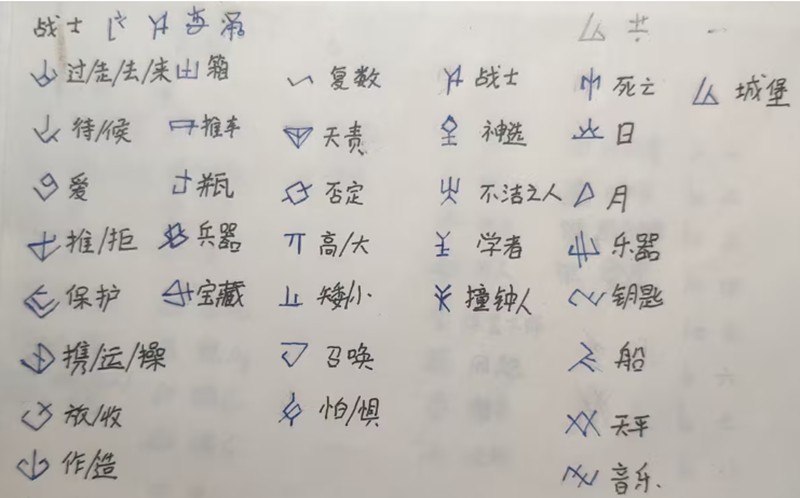 战士
过/走/去/来 箱 复数 战士 死亡 城堡
待/候 推车 天责 神选 日
爱 瓶 否定 不洁之人 月
推/拒 兵器 高/大 学者 乐器
保护 宝藏 矮小 撞钟人 钥匙
携/运/操 召唤 船
放/收 怕/惧 天平
作/造 音乐.